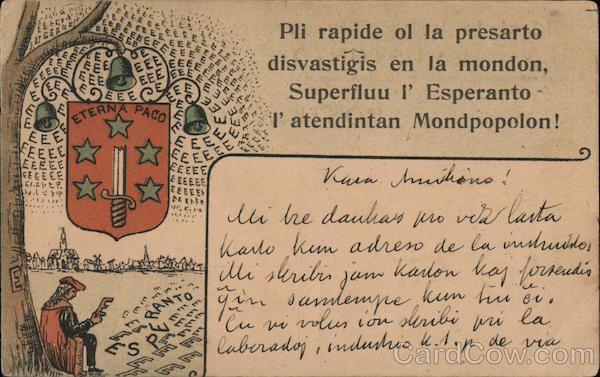 Pli rapide ol la presarto
disvastiĝis en la mondon,
Superfluu l' Esperanto
l' atendintan Mondpopolon!
ETERNA PACO
Kara Amikino!
Mi tre dankas pro via lasta
karto kun adreso de la instruisto.
Mi skribis jam karton kaj forsendis
ĝin samtempe kun tiu ĉi.
Ĉu vi volus ion skribi pri la
laboradoj, industrio k.t.p. de via
ESPERANTO
CardCow.com